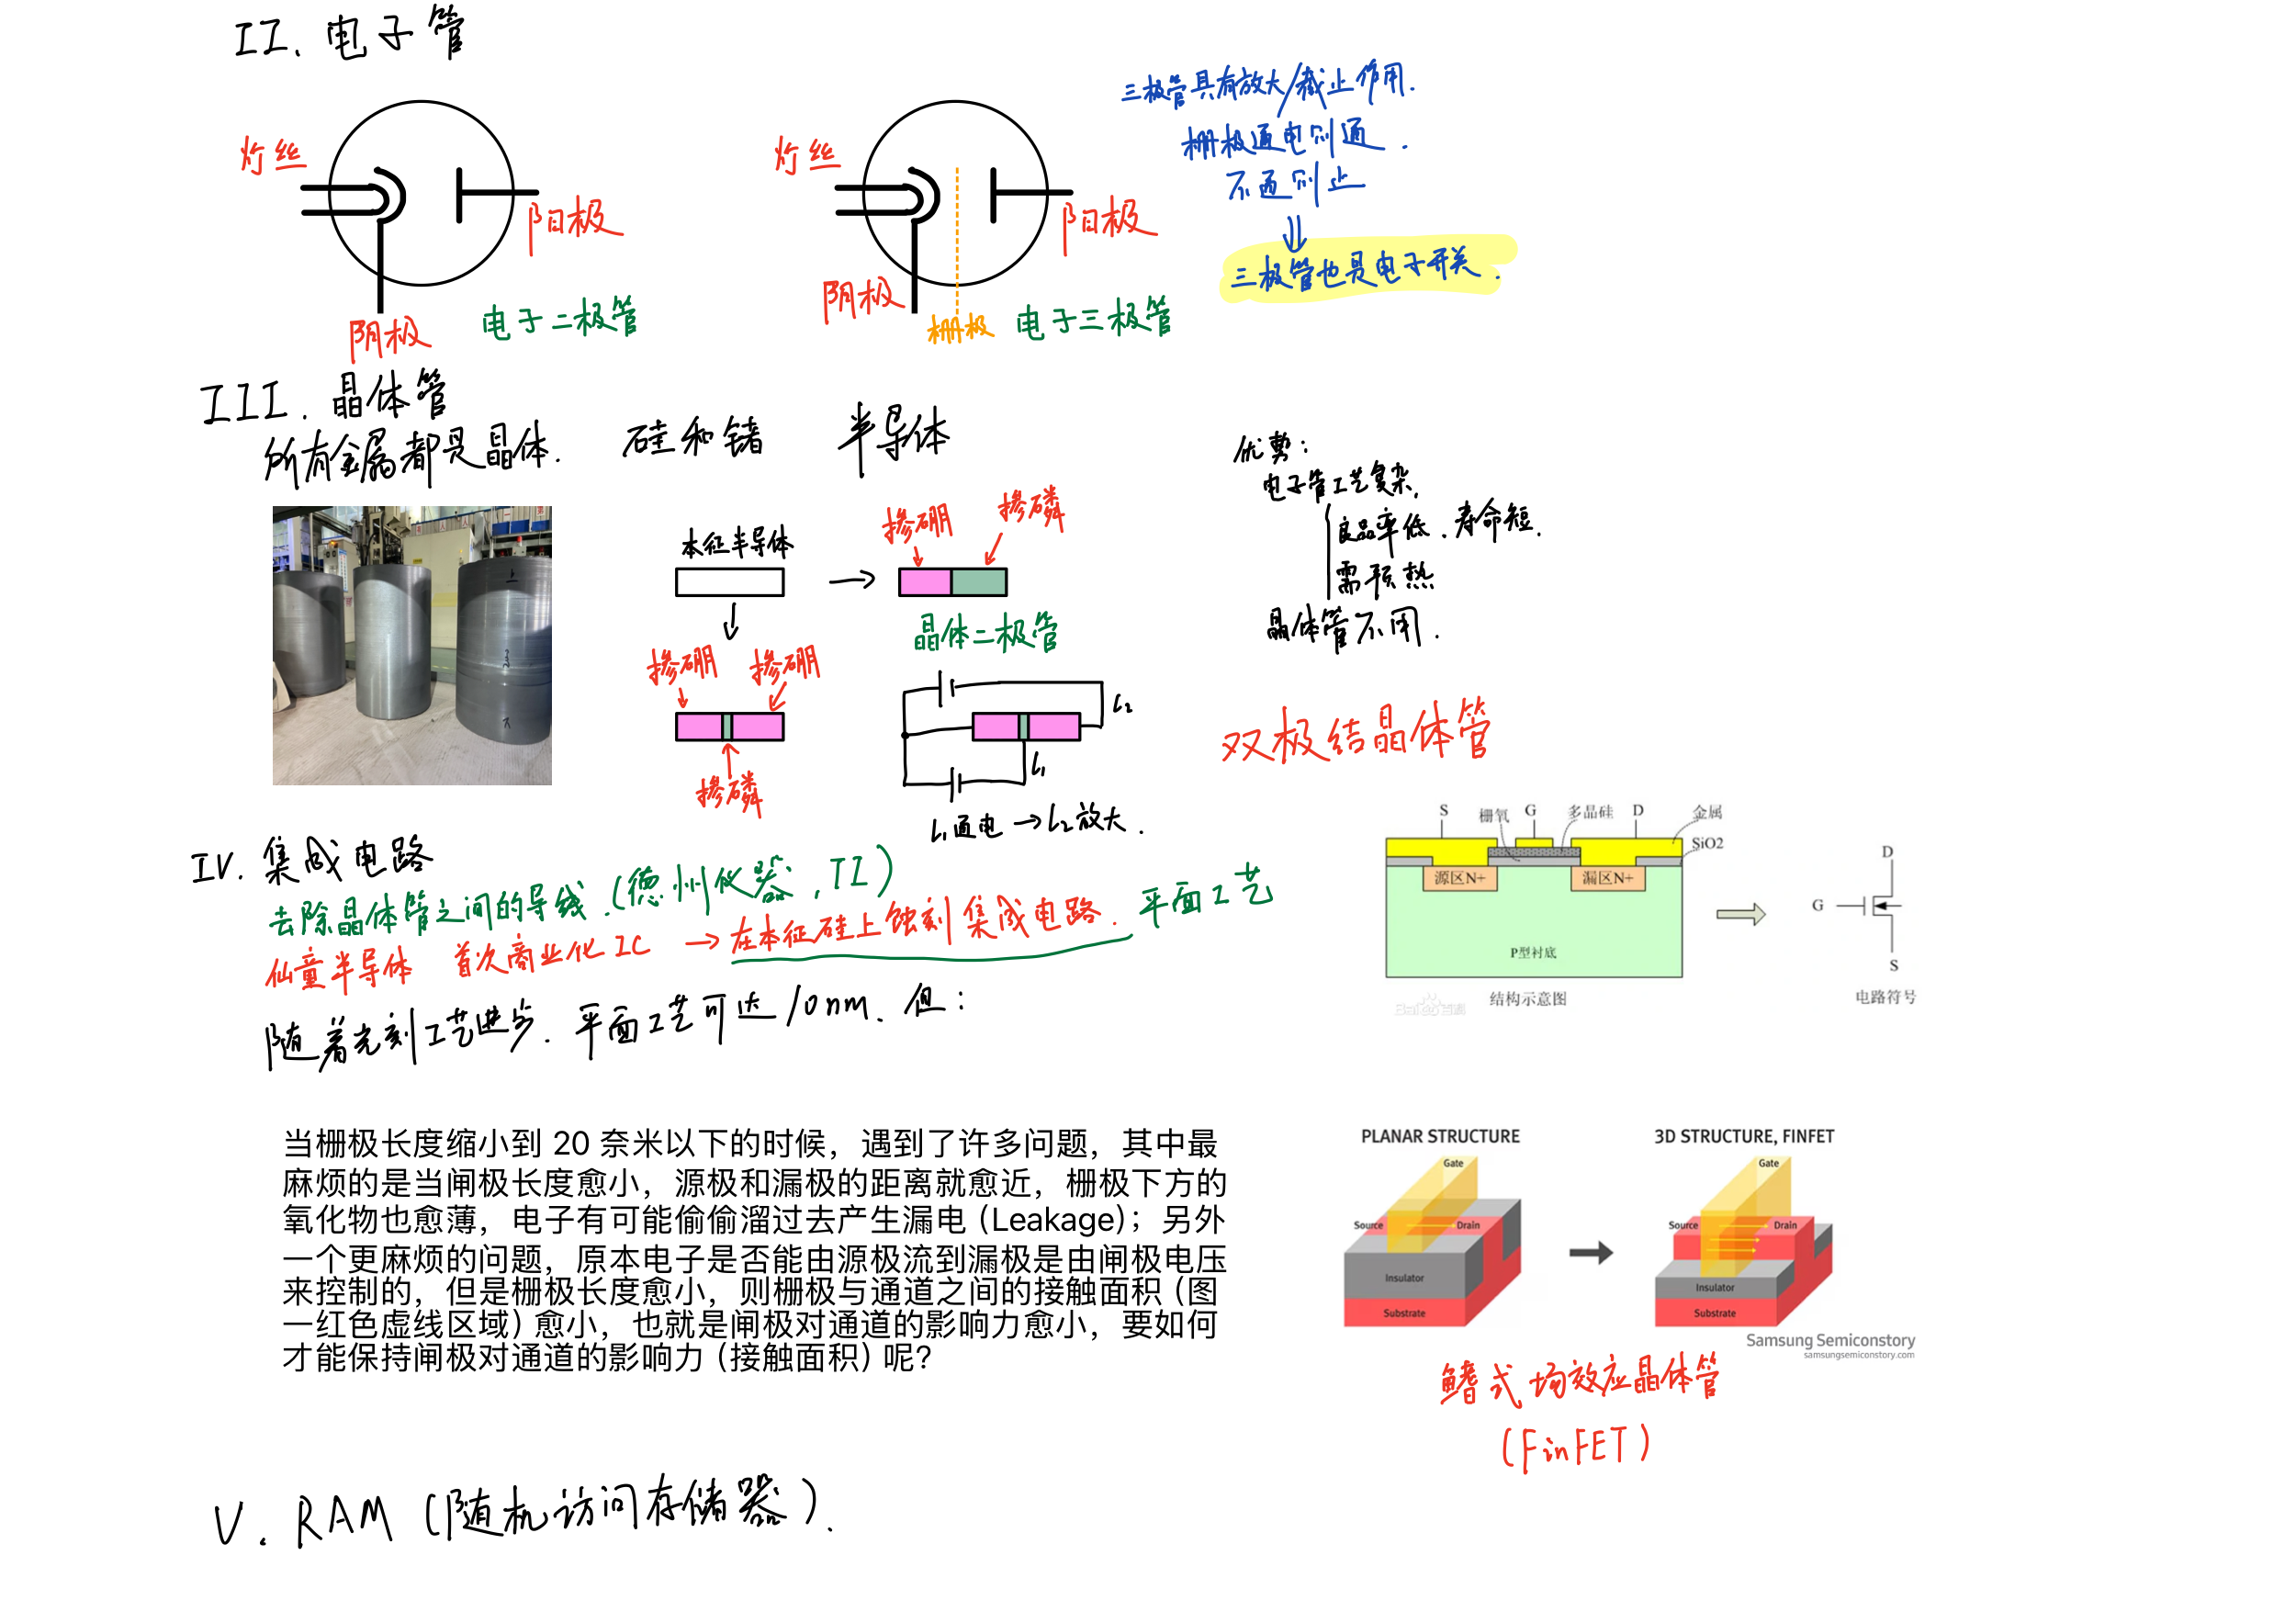 II. 电子管
灯丝
阳极
阴极
电子二极管
灯丝
阳极
阴极
栅极
电子三极管
三极管具有放大/截止作用.
栅极通电则通.
不通则止
⇓
三极管也是电子开关.
III. 晶体管
所有金属都是晶体. 硅和锗 半导体
本征半导体
掺硼 掺磷
晶体二极管
掺硼 掺硼
掺磷
L₂
L₁
L₁通电→L₂放大.
优势:
电子管工艺复杂,
良品率低、寿命短.
需预热
晶体管不用.
双极结晶体管
IV. 集成电路
去除晶体管之间的导线.(德州仪器, TI)
仙童半导体 首次商业化IC →在本征硅上蚀刻集成电路. 平面工艺
随着光刻工艺进步. 平面工艺可达10nm、但:
S 栅氧 G 多晶硅 D 金属
SiO2
源区N+ 漏区N+
P型衬底
结构示意图
Baidu百科
D
G
S
电路符号
当栅极长度缩小到 20 奈米以下的时候，遇到了许多问题，其中最
麻烦的是当闸极长度愈小，源极和漏极的距离就愈近，栅极下方的
氧化物也愈薄，电子有可能偷偷溜过去产生漏电（Leakage）；另外
一个更麻烦的问题，原本电子是否能由源极流到漏极是由闸极电压
来控制的，但是栅极长度愈小，则栅极与通道之间的接触面积（图
一红色虚线区域）愈小，也就是闸极对通道的影响力愈小，要如何
才能保持闸极对通道的影响力（接触面积）呢？
PLANAR STRUCTURE
Gate
Source Drain
Insulator
Substrate
3D STRUCTURE, FINFET
Gate
Source Drain
Insulator
Substrate
Samsung Semiconstory
samsungsemiconstory.com
鳍式场效应晶体管
(FinFET)
V. RAM (随机访问存储器).